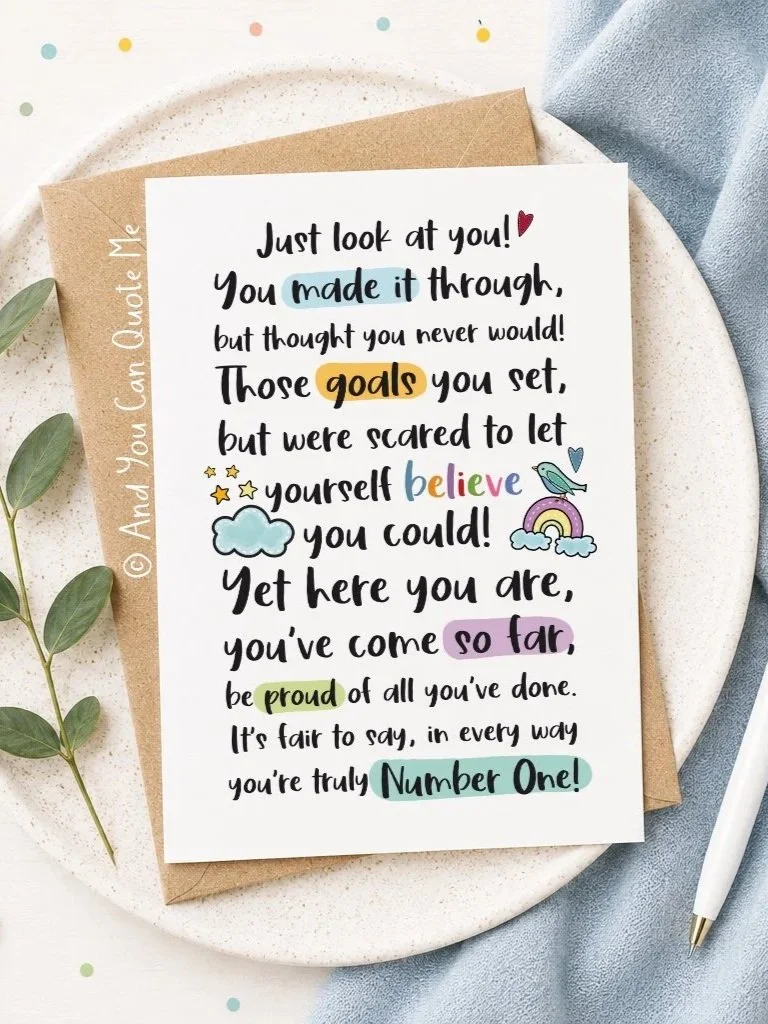 Just look at you!
You made it through,
but thought you never would!
Those goals you set,
but were scared to let
yourself believe
you could!
Yet here you are,
you've come so far,
be proud of all you've done.
It's fair to say, in every way
you're truly Number One!
© And You Can Quote Me